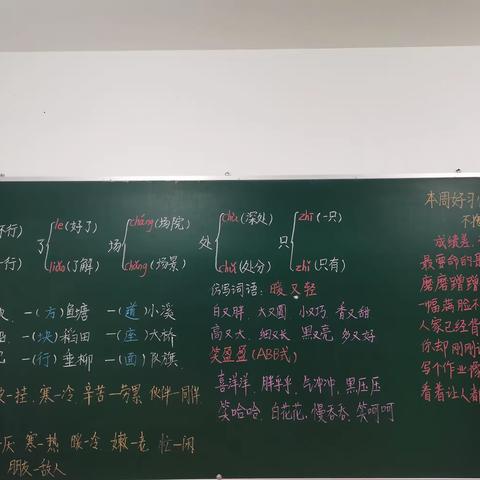 行)
了 le (好了)
liǎo (了解)
场 cháng (场院)
chǎng (场景)
处 chù (深处)
chǔ (处分)
只 zhī (一只)
zhǐ (只有)
一行)
一(方)鱼塘 一(道)小溪
一(块)稻田 一(座)大桥
一(行)垂柳 一(面)队旗
挂 寒—冷 辛苦—劳累 伙伴—同伴
厌 寒—热 暖—冷 嫩—老 忙—闲
朋友—敌人
仿写词语: 暖又轻
白又胖 大又圆 小又巧 香又甜
高又大 细又长 黑又亮 多又好
笑盈盈 (ABB式)
喜洋洋 胖乎乎 气冲冲 黑压压
笑哈哈 白花花 慢吞吞 笑呵呵
本周好习
不拖
成绩差,
最要命的是
磨磨蹭蹭
一幅满脸不
人家已经背
你却刚刚
写个作业
看着让人都